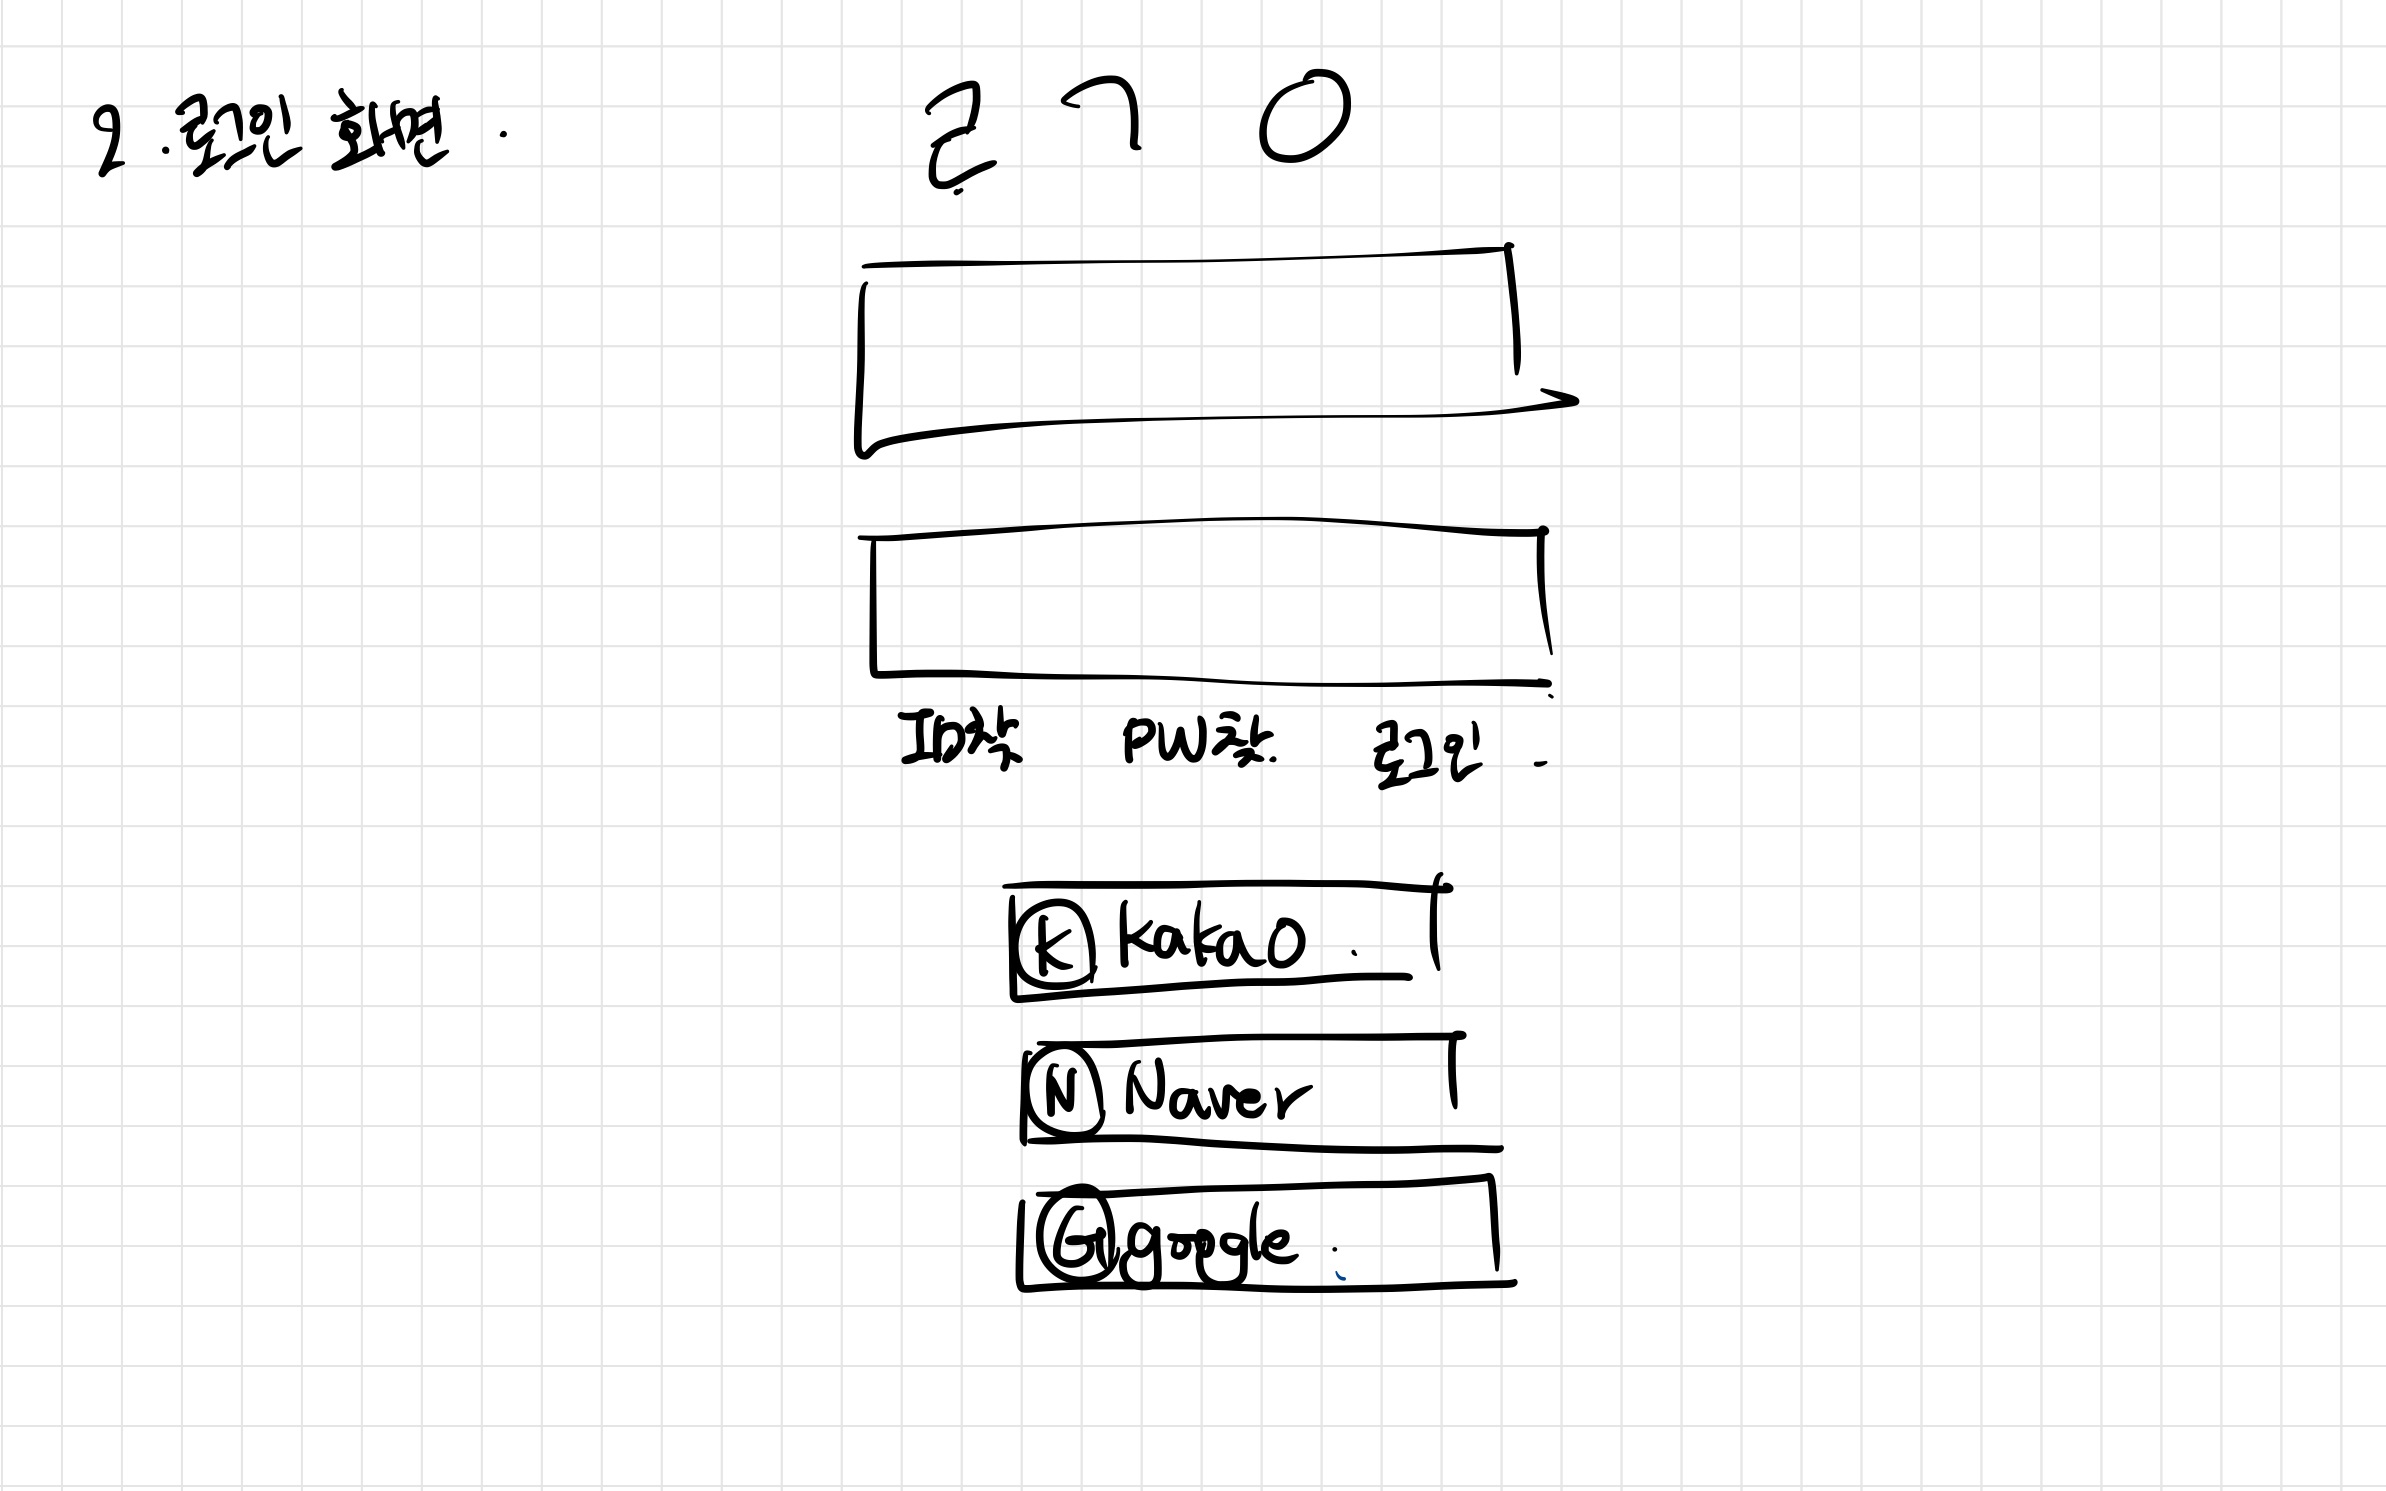 2. 로그인 화면.
ㄹ ㄱ ㅇ
ID찾 PW찾 로그인
K Kakao.
N Naver
G google.